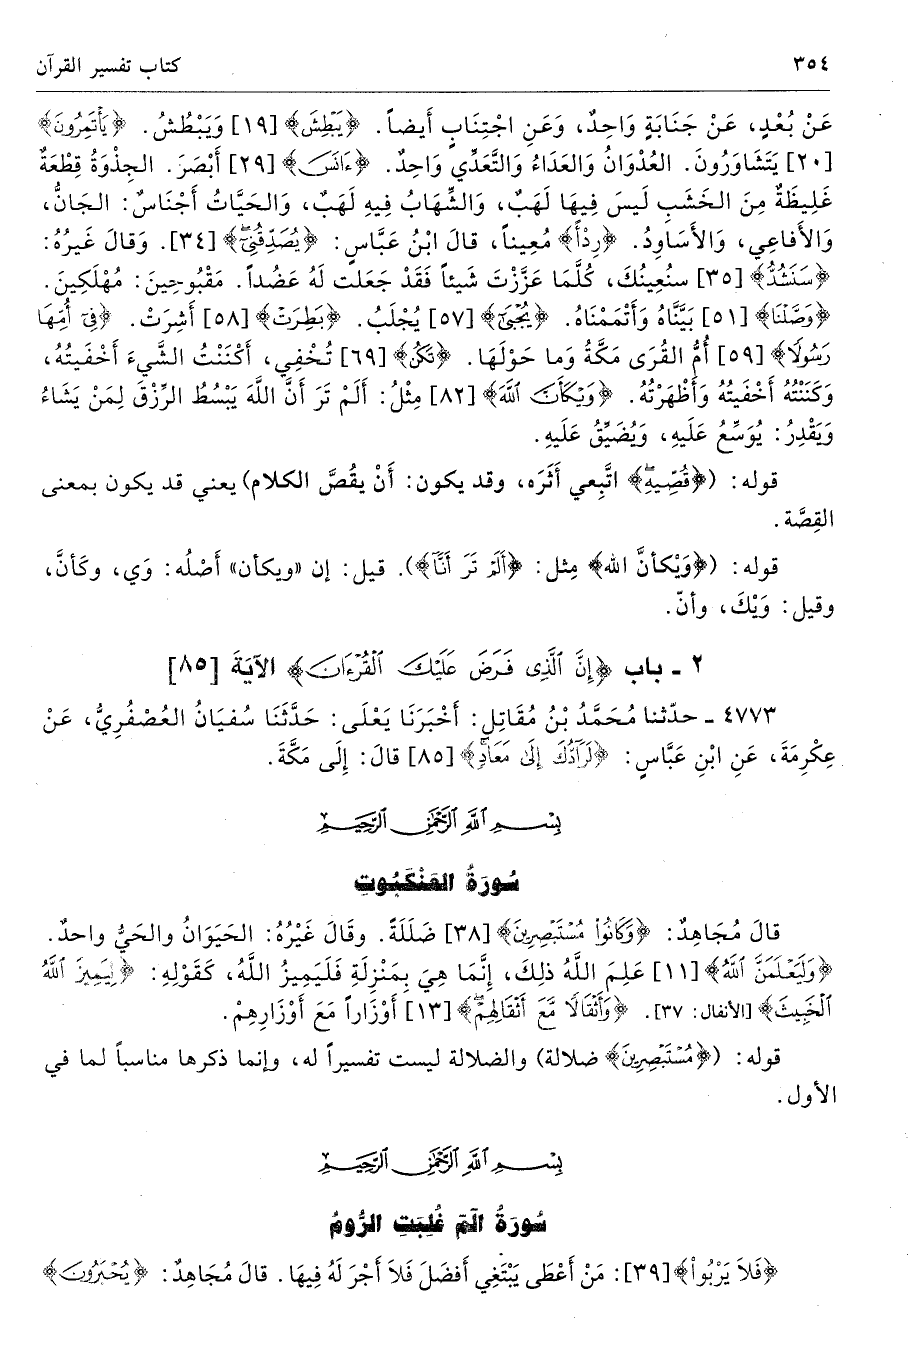 ٣٥٤
كتاب تفسير القرآن
عَنْ بُعْدٍ، عَنْ جَنَابَةٍ وَاحِدٌ، وَعَنِ اجْتِنَابٍ أَيضاً. ﴿يَبْطِشَ﴾ [١٩] وَيَبْطُشُ. ﴿يَأْتَمِرُونَ﴾
[٢٠] يَتَشَاوَرُونَ. العُدْوَانُ وَالعَدَاءُ وَالتَّعَدِّي وَاحِدٌ. ﴿ءَانَسَ﴾ [٢٩] أَبْصَرَ. الجِذْوَةُ قِطْعَةٌ
غَلِيظَةٌ مِنَ الخَشَبِ لَيسَ فِيهَا لَهَبٌ، وَالشِّهَابُ فِيهِ لَهَبٌ، وَالحَيَّاتُ أَجْنَاسٌ: الجَانُّ،
وَالأَفَاعِي، وَالأَسَاوِدُ. ﴿رِدْءاً﴾ مُعِيناً، قالَ ابْنُ عَبَّاسٍ: ﴿يُصَدِّقُنِيٓ﴾ [٣٤]. وَقالَ غَيرُهُ:
﴿سَنَشُدُّ﴾ [٣٥] سنُعِينُكَ، كُلَّمَا عَزَّزْتَ شَيئاً فَقَدْ جَعَلت لَهُ عَضُداً. مَقْبُوحِينَ: مُهْلَكِينَ.
﴿وَصَّلْنَا﴾ [٥١] بَيَّنَّاهُ وَأَتمَمْنَاهُ. ﴿يُجْبَىٰ﴾ [٥٧] يُجْلَبُ. ﴿بَطِرَتْ﴾ [٥٨] أَشِرَتْ. ﴿فِىٓ أُمِّهَا
رَسُولًا﴾ [٥٩] أُمُّ القُرَى مَكَّةُ وَما حَوْلَهَا. ﴿تُكِنُّ﴾ [٦٩] تُخْفِي، أَكْنَنْتُ الشَّيءَ أَخْفَيتُهُ،
وَكَنَنْتُهُ أَخْفَيتُهُ وَأَظْهَرْتُهُ. ﴿وَيْكَأَنَّ اللَّهَ﴾ [٨٢] مِثْلُ: أَلَمْ تَرَ أَنَّ اللَّهَ يَبْسُطُ الرِّزْقَ لِمَنْ يَشَاءُ
وَيَقْدِرُ: يُوَسِّعُ عَلَيهِ، وَيُضَيِّقُ عَلَيهِ.
قوله: (﴿قُصِّيهِ﴾ اتَّبِعي أَثَرَه، وقد يكون: أَنْ يقُصَّ الكلام) يعني قد يكون بمعنى
القِصَّة.
قوله: (﴿وَيْكأنَّ الله﴾ مِثل: ﴿أَلَمْ تَرَ أَنَّا﴾). قيل: إن «ويكأن» أصْلُه: وَي، وكَأنَّ،
وقيل: وَيْكَ، وأنّ.
٢ - باب ﴿إِنَّ ٱلَّذِى فَرَضَ عَلَيْكَ ٱلْقُرْءَانَ﴾ الآيَةَ [٨٥]
٤٧٧٣ - حدّثنا مُحَمَّدُ بْنُ مُقَاتِلٍ: أَخْبَرَنَا يَعْلَى: حَدَّثَنَا سُفيَانُ العُصْفُرِيُّ، عَنْ
عِكْرِمَةَ، عَنِ ابْنِ عَبَّاسٍ: ﴿لَرَآدُّكَ إِلَىٰ مَعَادٍ﴾ [٨٥] قالَ: إِلَى مَكَّةَ.
بِسْمِ ٱللَّهِ ٱلرَّحْمَٰنِ ٱلرَّحِيمِ
سُورَةُ العَنْكَبُوتِ
قالَ مُجَاهِدٌ: ﴿وَكَانُوا۟ مُسْتَبْصِرِينَ﴾ [٣٨] ضَلَلَةً. وَقالَ غَيْرُهُ: الحَيَوَانُ والحَيُّ واحدٌ.
﴿وَلَيَعْلَمَنَّ ٱللَّهُ﴾ [١١] عَلِمَ اللَّهُ ذلِكَ، إِنَّمَا هِيَ بِمَنْزِلَةِ فَلَيَمِيزُ اللَّهُ، كَقَوْلِهِ: ﴿لِيَمِيزَ ٱللَّهُ
ٱلْخَبِيثَ﴾ [الأنفال: ٣٧]. ﴿وَأَثْقَالًا مَّعَ أَثْقَالِهِمْ﴾ [١٣] أَوْزَاراً مَعَ أَوْزَارِهِمْ.
قوله: (﴿مُسْتَبْصِرِينَ﴾ ضلالة) والضلالة ليست تفسيراً له، وإنما ذكرها مناسباً لما في
الأول.
بِسْمِ ٱللَّهِ ٱلرَّحْمَٰنِ ٱلرَّحِيمِ
سُورَةُ الٓمٓ غُلِبَتِ الرُّومُ
﴿فَلاَ يَرْبُواْ﴾ [٣٩]: مَنْ أَعْطَى يَبْتَغِي أَفضَلَ فَلاَ أَجْرَ لَهُ فِيهَا. قالَ مُجَاهِدٌ: ﴿يُحْبَرُونَ﴾